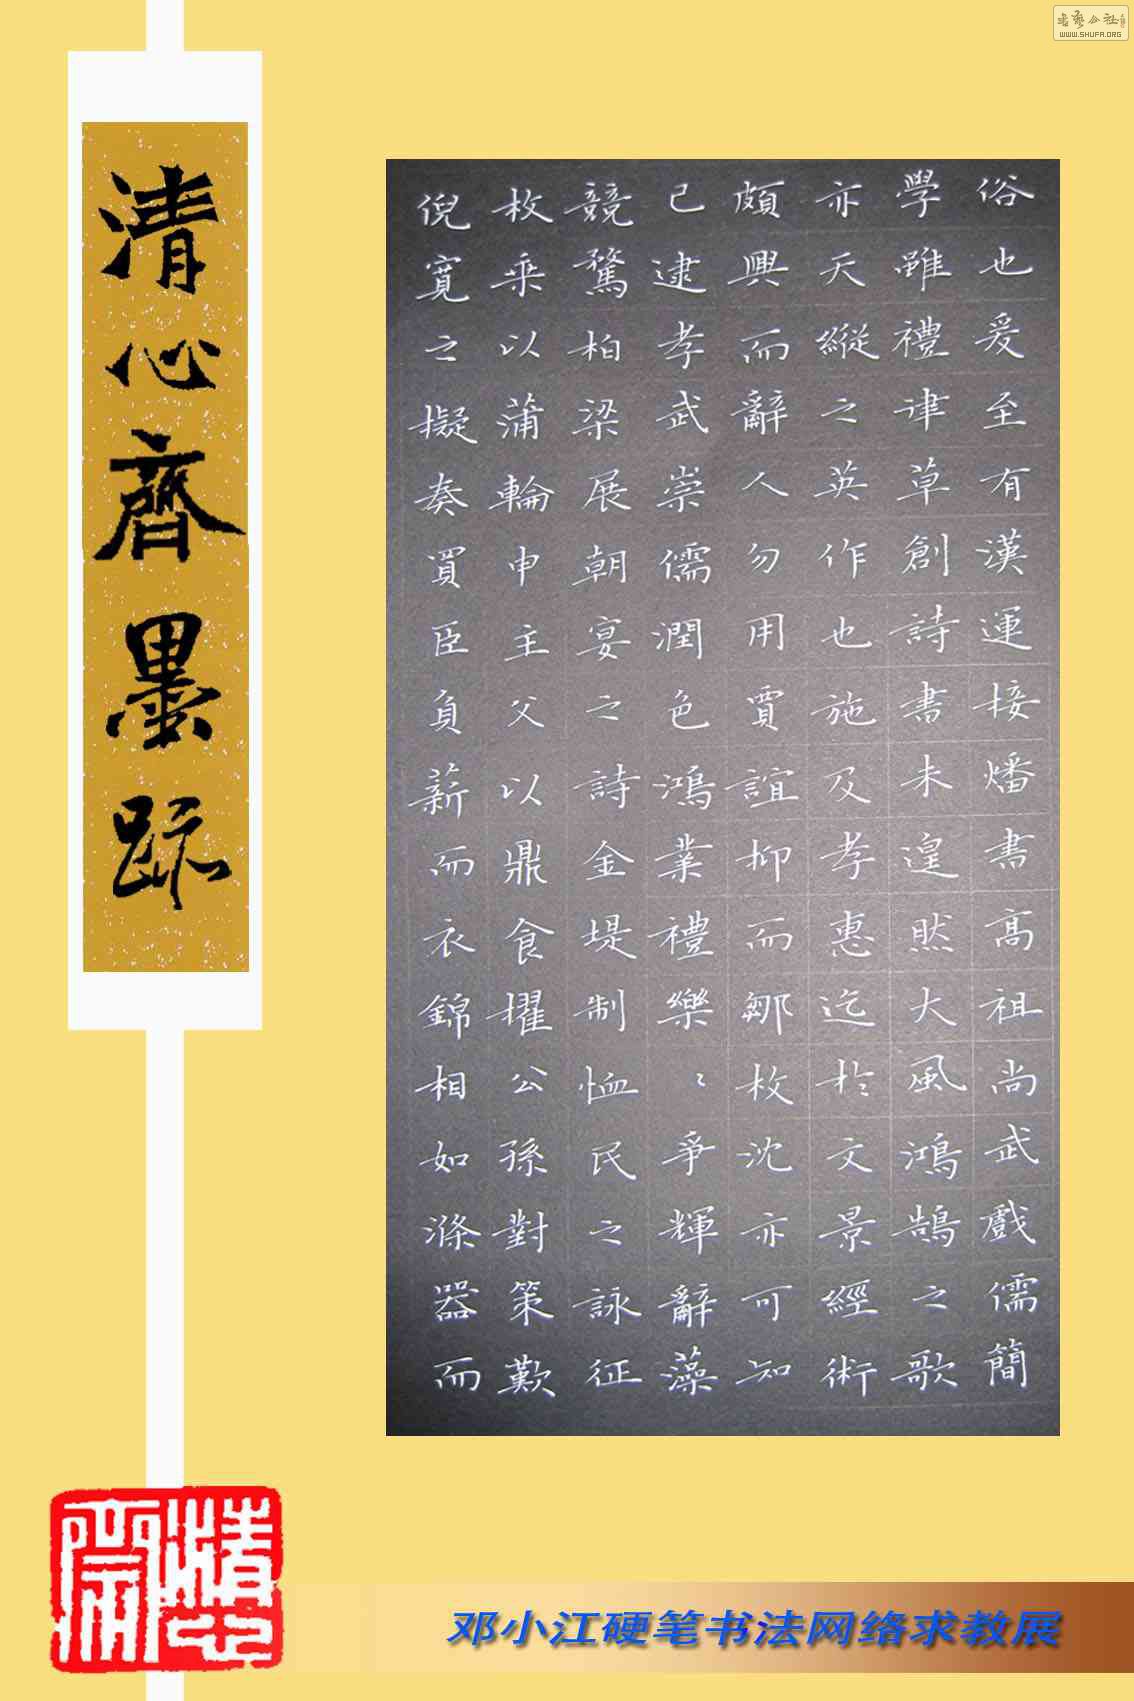 书艺公社
WWW.SHUFA.ORG
清心齋墨跡
俗也爰至有漢運接燔書高祖尚武戲儒簡
學雖禮律草創詩書未遑然大風鴻鵠之歌
亦天縱之英作也施及孝惠迄於文景經術
頗興而辭人勿用賈誼抑而鄒枚沈亦可知
已逮孝武崇儒潤色鴻業禮樂〻爭輝辭藻
競騖柏梁展朝宴之詩金堤制恤民之詠征
枚乘以蒲輪申主父以鼎食擢公孫對策歎
倪寬之擬奏買臣負薪而衣錦相如滌器而
清心齋
邓小江硬笔书法网络求教展